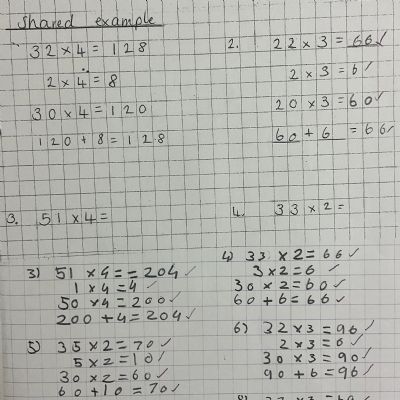 Shared example
1. 32 × 4 = 128
2 × 4 = 8
30 × 4 = 120
120 + 8 = 128
2. 22 × 3 = 66 ✓
2 × 3 = 6 ✓
20 × 3 = 60 ✓
60 + 6 = 66 ✓
3. 51 × 4 =
4. 33 × 2 =
3) 51 × 4 = = 204 ✓
1 × 4 = 4 ✓
50 × 4 = 200 ✓
200 + 4 = 204 ✓
4) 33 × 2 = 66 ✓
3 × 2 = 6 ✓
30 × 2 = 60 ✓
60 + 6 = 66 ✓
5) 35 × 2 = 70 ✓
5 × 2 = 10 ✓
30 × 2 = 60 ✓
60 + 10 = 70 ✓
6) 32 × 3 = 96 ✓
2 × 3 = 6 ✓
30 × 3 = 90 ✓
90 + 6 = 96 ✓